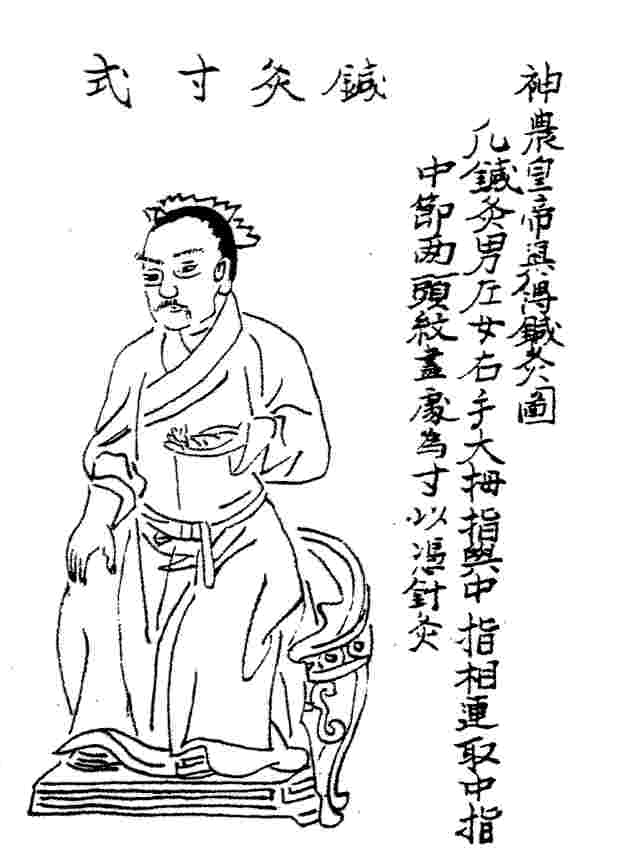 鍼灸寸式
神農皇帝眞得鍼灸圖
凡鍼灸男左女右手大拇指與中指相連取中指
中節两頭紋盡處為寸以憑針灸